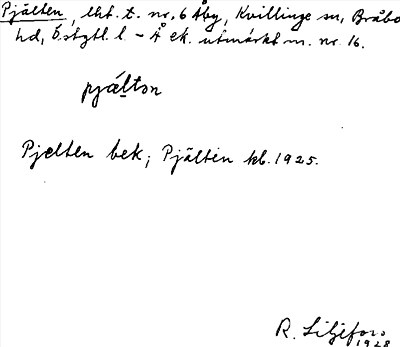 Pjälten, lht. t. nr. 6 Åby, Kvillinge sn, Bråbo
hd, Östgtl. l - Å ek. utmärkt m. nr. 16.
pjälton
Pjelten bek; Pjälten kb. 1925.
R. Liljefors
1928